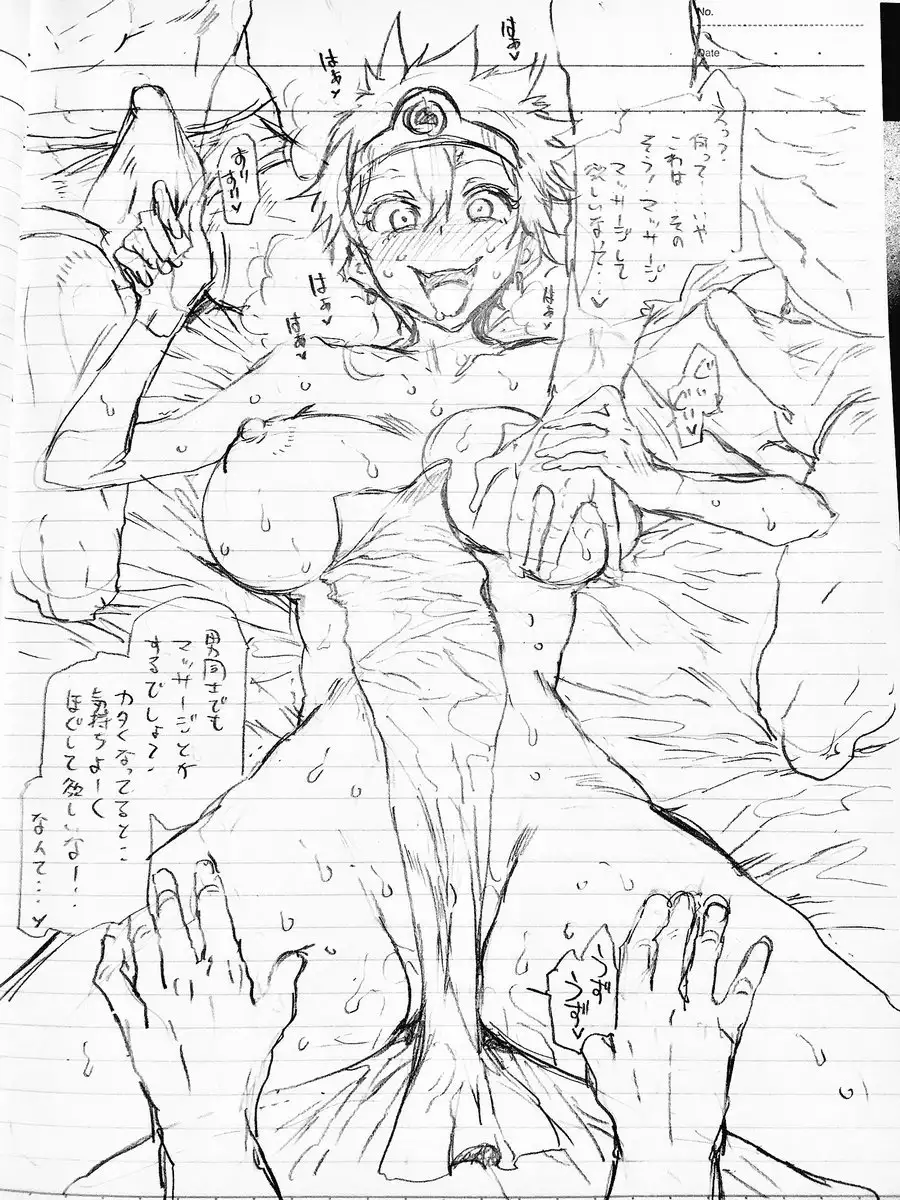 No.
Date
えっ？
何って…いや
これは…その
そう！マッサージ
マッサージして
欲しいなって…♥
はぁ♥
はぁ♥
はぁ♥
はぁ♥
はぁ♥
男同士でも
マッサージとか
するでしょ？
カタくなってると…
気持ちよーく
ほぐして欲しいなー…
なんて…♥